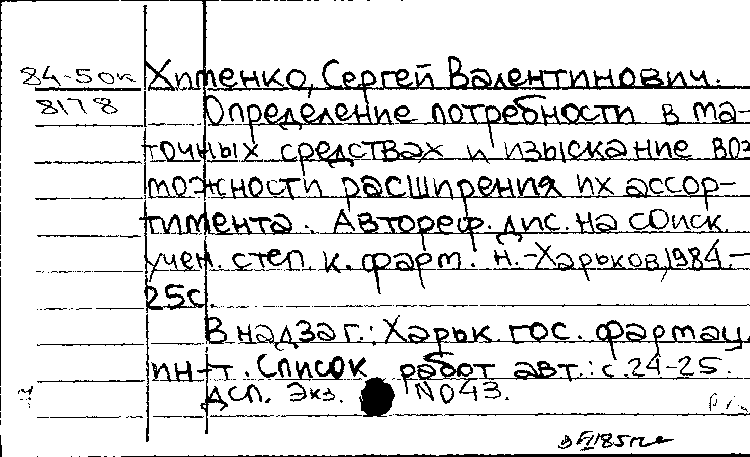 84-50к Хитенко, Сергей Валентинович.
8178 Определение потребности в ма-
точных средствах и изыскание воз
можности расширения их ассор-
тимента. Автореф. дис. на соиск.
учен. степ. к. фарм. н.-Харьков,1984.-
25с.
В надзаг.: Харьк. гос. фармац.
ин-т. Список работ авт.: с.24-25.
ДСП. Экз. N043.